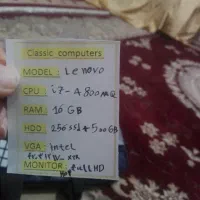 Classic computers
MODEL: Lenovo
CPU: i7-4800MQ
RAM: 16 GB
HDD: 256 ssd + 500 GB
VGA: intel
MONITOR: full HD